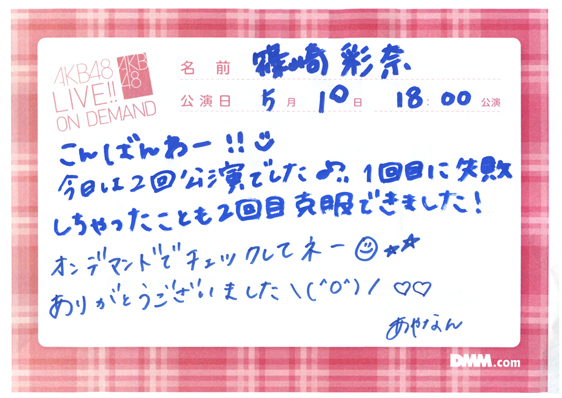 AKB48
LIVE!!
ON DEMAND
AKB
48
名前 篠崎 彩奈
公演日 5月 10日 18:00 公演
こんばんわー!!
今日は2回公演でした♪。1回目に失敗
しちゃったことも2回目克服できました!
オンデマンドでチェックしてネー☺★★
ありがとうございました\(^o^)/ ♡♡
あやなん
DMM.com